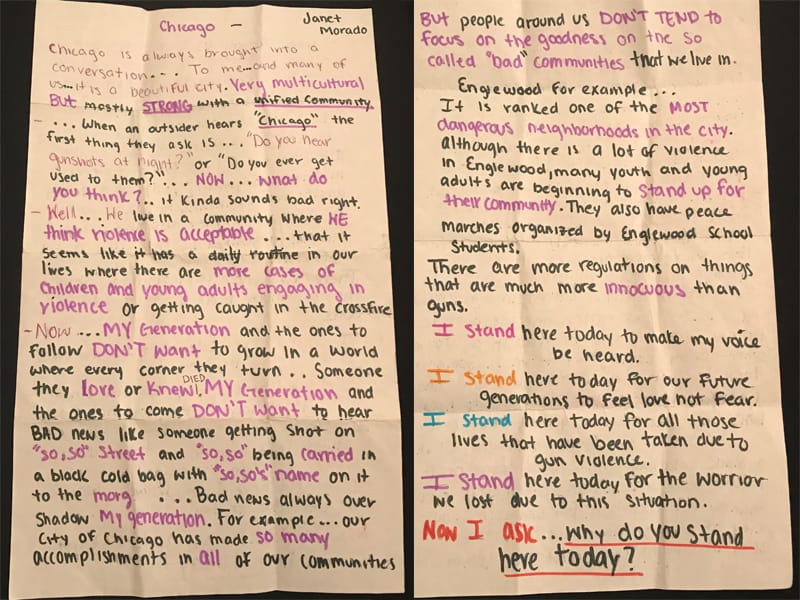 Chicago -
Janet
Morado
Chicago is always brought into a
conversation... To me...and many of
us...it is a beautiful city. Very multicultural
But mostly STRONG with a unified community.
- ... When an outsider hears "Chicago" the
first thing they ask is... "Do you hear
gunshots at night?" or "Do you ever get
used to them?"... NOW... what do
you think?.. it kinda sounds bad right.
- Well... We live in a community where WE
think violence is acceptable ... that it
seems like it has a daily routine in our
lives where there are more cases of
children and young adults engaging in
violence or getting caught in the crossfire
- Now ... MY Generation and the ones to
follow DON'T want to grow in a world
where every corner they turn .. Someone
they love or knew DIED, MY Generation and
the ones to come DON'T want to hear
BAD news like someone getting shot on
"so,so" street and "so,so" being carried in
a black cold bag with "so,so's" name on it
to the morg ... Bad news always over
shadow My generation. For example... our
city of Chicago has made so many
accomplishments in all of our communities
BUT people around us DON'T TEND to
focus on the goodness on the so
called "bad" communities that we live in.
Englewood for example...
It is ranked one of the MOST
dangerous neighborhoods in the city.
although there is a lot of violence
in Englewood, many youth and young
adults are beginning to stand up for
their community. They also have peace
marches organized by Englewood School
Students.
There are more regulations on things
that are much more innocuous than
guns.
I stand here today to make my voice
be heard.
I stand here today for our future
generations to feel love not fear.
I stand here today for all those
lives that have been taken due to
gun violence.
I stand here today for the worrior
we lost due to this situation.
Now I ask... why do you stand
here today?